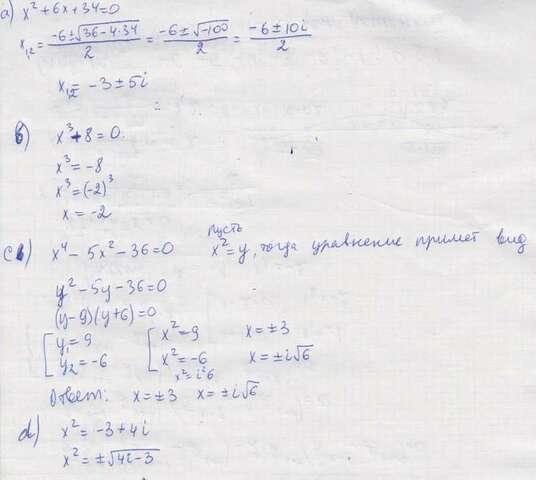 a) x² + 6x + 34 = 0
x₁,₂ = (-6 ± √(36 - 4·34))/2 = (-6 ± √-100)/2 = (-6 ± 10i)/2
x₁,₂ = -3 ± 5i
б) x³ + 8 = 0
x³ = -8
x³ = (-2)³
x = -2
c) x⁴ - 5x² - 36 = 0 пусть x² = y, тогда уравнение примет вид
y² - 5y - 36 = 0
(y - 9)(y + 6) = 0
[ y₁ = 9 [ x² = 9 x = ±3
y₂ = -6 x² = -6 x = ±i√6
x² = i²6
Ответ: x = ±3 x = ±i√6
d) x² = -3 + 4i
x² = ±√4i - 3